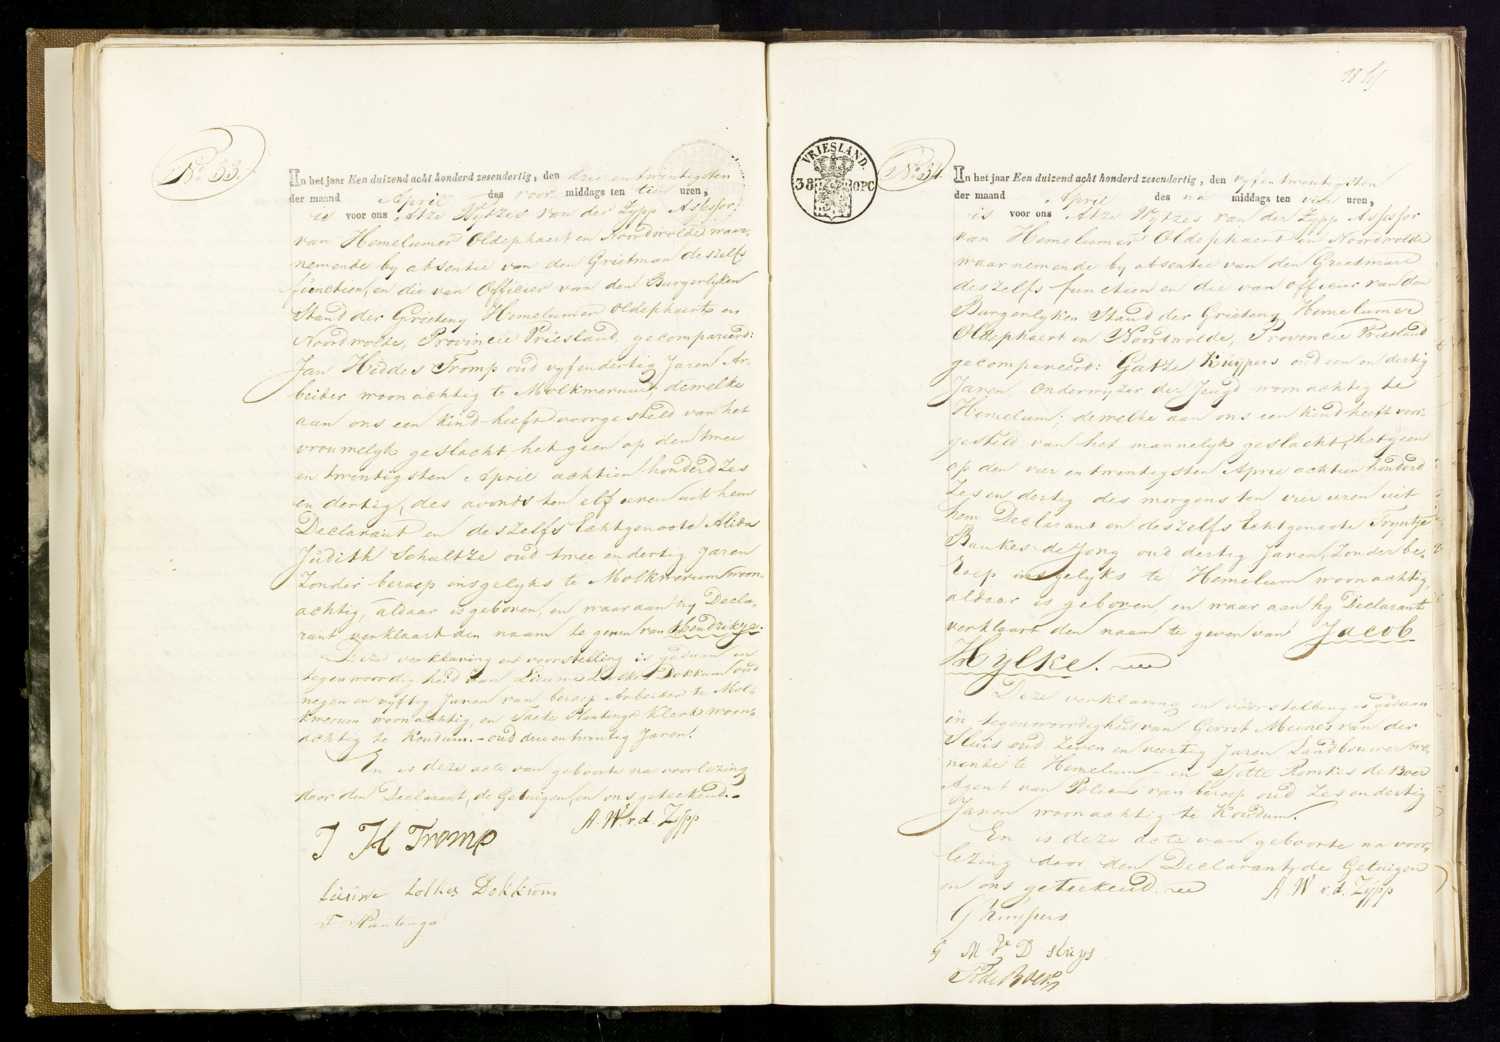 No. 33.
In het jaar Een duizend acht honderd zesendertig, den drie en twintigsten
der maand April des voor middags ten tien uren,
is voor ons Atze Wytzes van der Zypp Assessor
van Hemelumer Oldephaert en Noordwolde waar-
nemende by absentie van den Grietman deszelfs
functien, en die van Officier van den Burgerlyken
Stand der Grieteny Hemelumer Oldephaert en
Noordwolde, Provincie Vriesland, gecompareerd:
Jan Hiddes Tromp oud vyf en dertig Jaren Ar-
beider woonachtig te Molkwerum, demelke
aan ons een kind heeft voorgesteld van het
vrouwelyk geslacht het geen op den twee
en twintigsten April achtien honderd zes
en dertig, des avonds ten elf uren uit hem
Declarant en deszelfs Echtgenoote Alida
Judith Schultze oud twee en dertig Jaren
zonder beroep insgelyks te Molkwerum woon-
achtig, aldaar is geboren, en waar aan hy Decla-
rant verklaart den naam te geven van Hendrikje.
Deze verklaring en voorstelling is gedaan in
tegenwoordigheid van Lieuwe Lolkes Dokkum oud
negen en vyftig Jaren van beroep Arbeider te Mol-
kwerum woonachtig, en Tjacke Plantenga Klerk woon-
achtig te Koudum. - oud drie en twintig Jaren.
En is deze acte van geboorte na voorlezing
door den Declarant, de Getuigen, en ons geteekend. -
A. W. v. d. Zypp
J H Tromp
Lieuwe Lolkes Dokkum
T Plantenga
VRIESLAND.
38 OPC
No. 34.
In het jaar Een duizend acht honderd zesendertig, den vyfentwintigsten
der maand April des na middags ten vier uren,
is voor ons Atze Wytzes van der Zypp Assessor
van Hemelumer Oldephaert en Noordwolde
waarnemende by absentie van den Grietman
deszelfs functien en die van officier van den
Burgerlyken Stand der Grieteny Hemelumer
Oldephaert en Noordwolde, Provincie Vriesland
gecompareerd: Gatze Kuypers oud een en dertig
Jaren, Onderwyzer der Jeugd woonachtig te
Hemelum; demelke aan ons een kind heeft voor-
gesteld van het mannelyk geslacht, het geen
op den vier en twintigsten April achtien honderd
zes en dertig des morgens ten vier uren uit
hem Declarant en deszelfs Echtgenoote Tryntje
Baukes de Jong oud dertig Jaren, zonder be-
roep insgelyks te Hemelum woonachtig,
aldaar is geboren, en waar aan hy Declarant
verklaart den naam te geven van Jacob
Hylke.
Deze verklaring en voorstelling is gedaan
in tegenwoordigheid van Gerrit Meines van der
Sluis oud zeven en veertig Jaren Landbouwer wo-
nende te Hemelum - en Tjitte Romkes de Boer
Agent van Policie van beroep oud zes en dertig
Jaren woonachtig te Koudum.
En is deze acte van geboorte na voor-
lezing door den Declarant, de Getuigen
en ons geteekend.
A W v. d. Zypp
G Kuipers
G M Vr D Sluys
T R de Boer